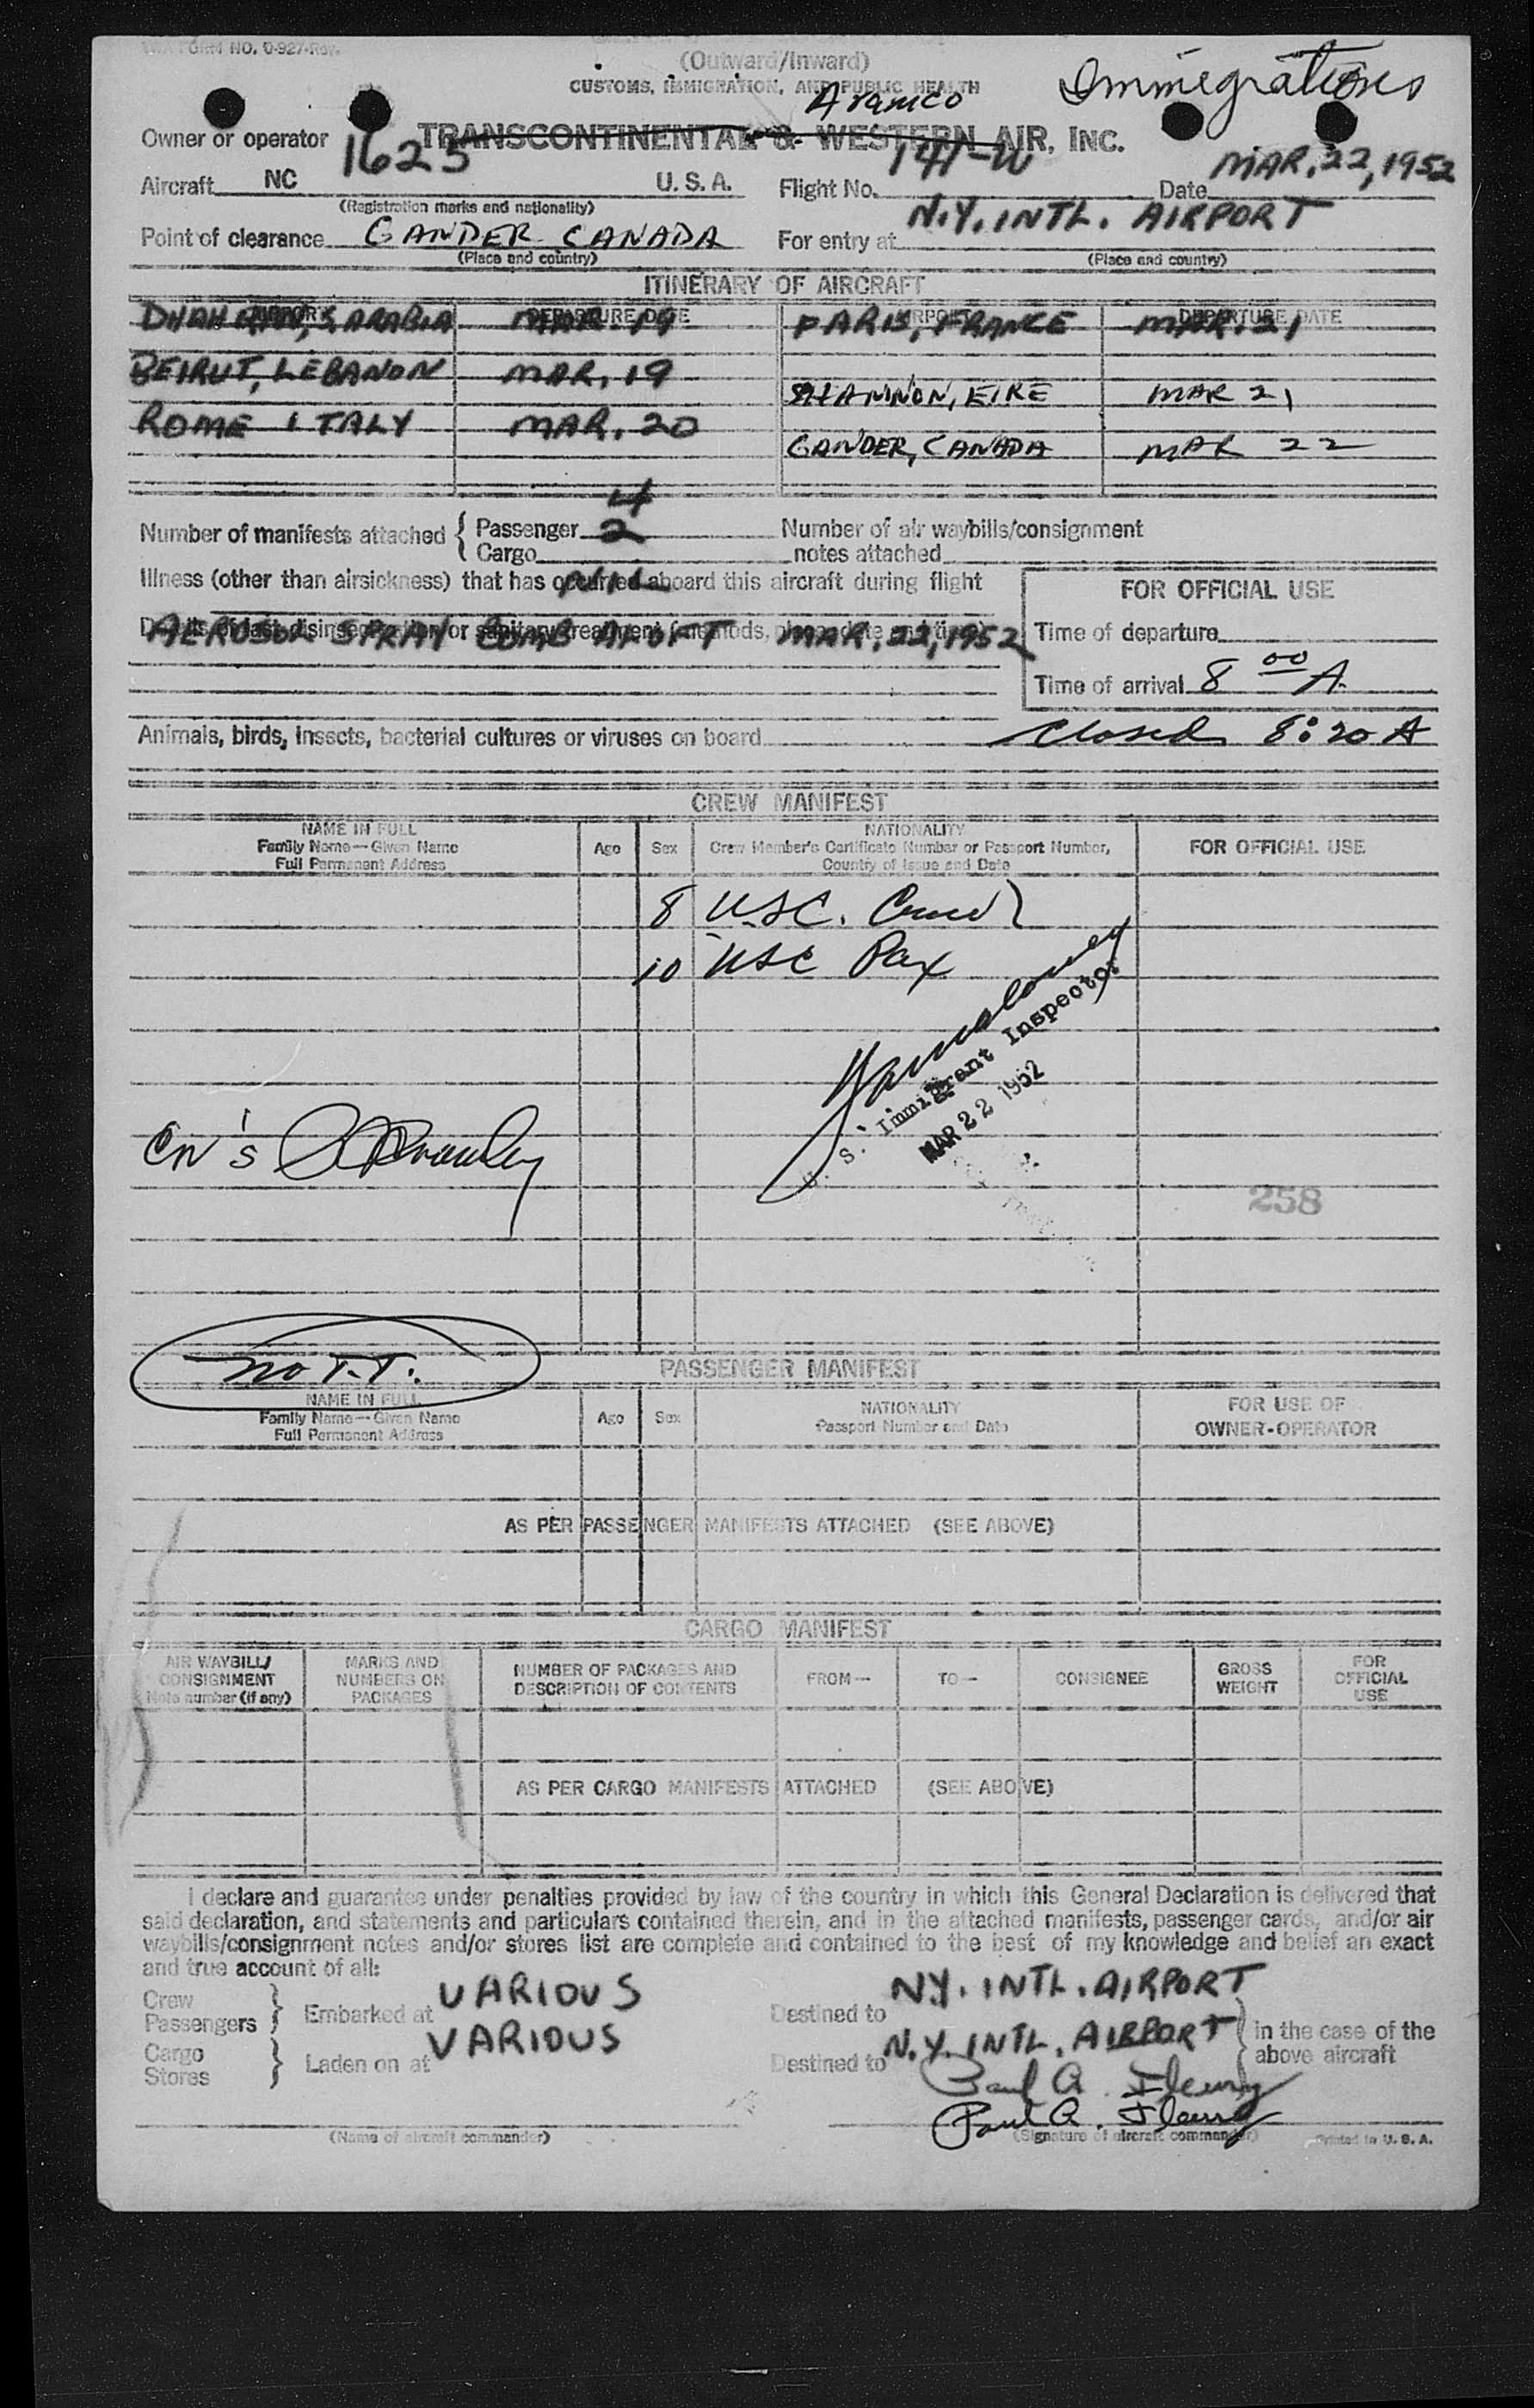 TWA FORM NO. O-927-Rev.
(Outward/Inward)
CUSTOMS, IMMIGRATION, AND PUBLIC HEALTH
Immigrations
Aramco
Owner or operator TRANSCONTINENTAL & WESTERN AIR, INC.
Aircraft NC 1623 U. S. A. Flight No. 141-W Date MAR, 22, 1952
(Registration marks and nationality)
Point of clearance GANDER CANADA For entry at N.Y. INTL. AIRPORT
(Place and country) (Place and country)
ITINERARY OF AIRCRAFT
AIRPORT DEPARTURE DATE AIRPORT DEPARTURE DATE
DHAHRAN, S, ARABIA MAR. 19 PARIS, FRANCE MAR. 21
BEIRUT, LEBANON MAR, 19
SHANNON, EIRE MAR 21
ROME ITALY MAR. 20
GANDER, CANADA MAR 22
4
Number of manifests attached { Passenger 2 Number of air waybills/consignment
Cargo notes attached
NIL
Illness (other than airsickness) that has occurred aboard this aircraft during flight
FOR OFFICIAL USE
AEROSOL SPRAY BOMB ALOFT MAR. 22, 1952
Time of departure
Time of arrival 8 00 A.
Animals, birds, insects, bacterial cultures or viruses on board Closed 8:20 A
CREW MANIFEST
NAME IN FULL
Family Name—Given Name
Full Permanent Address
Age Sex
NATIONALITY
Crew Member's Certificate Number or Passport Number,
Country of Issue and Date
FOR OFFICIAL USE
8 USC. Crew
10 USC Pax
U. S. Immigrant Inspector
MAR 22 1952
258
No T.T.
PASSENGER MANIFEST
NAME IN FULL
Family Name—Given Name
Full Permanent Address
Age Sex
NATIONALITY
Passport Number and Date
FOR USE OF
OWNER-OPERATOR
AS PER PASSENGER MANIFESTS ATTACHED (SEE ABOVE)
CARGO MANIFEST
AIR WAYBILL/
CONSIGNMENT
Note number (if any)
MARKS AND
NUMBERS ON
PACKAGES
NUMBER OF PACKAGES AND
DESCRIPTION OF CONTENTS
FROM— TO— CONSIGNEE
GROSS
WEIGHT
FOR
OFFICIAL
USE
AS PER CARGO MANIFESTS ATTACHED (SEE ABOVE)
I declare and guarantee under penalties provided by law of the country in which this General Declaration is delivered that
said declaration, and statements and particulars contained therein, and in the attached manifests, passenger cards, and/or air
waybills/consignment notes and/or stores list are complete and contained to the best of my knowledge and belief an exact
and true account of all:
Crew
Passengers } Embarked at VARIOUS Destined to N.Y. INTL. AIRPORT
Cargo
Stores } Laden on at VARIOUS Destined to N.Y. INTL. AIRPORT
in the case of the
above aircraft
Paul A. Fleury
Paul A. Fleury
(Name of aircraft commander) (Signature of aircraft commander) Printed in U. S. A.